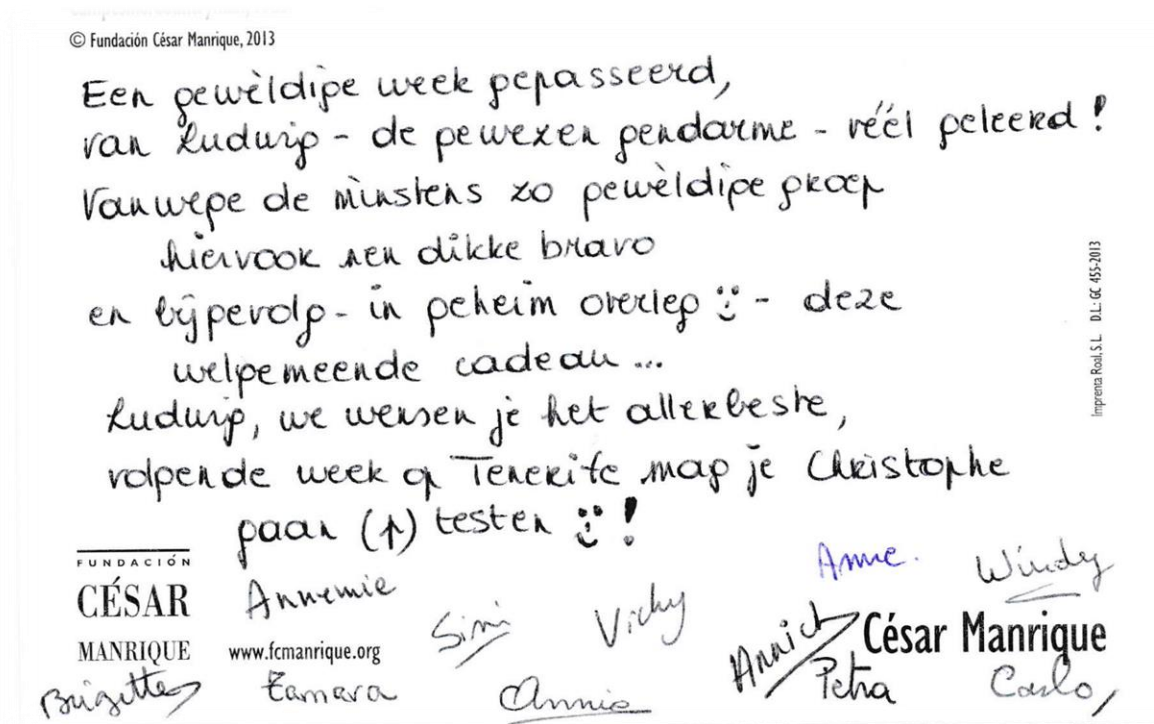 © Fundación César Manrique, 2013
Een gewèldige week gepasseerd,
van Ludwig - de gewezen gendarme - véél geleerd!
Vanwege de minstens zo gewèldige groep
hiervook nen dikke bravo
en bijgevolg - in geheim overleg :) - deze
welgemeende cadeau ...
Ludwig, we wensen je het allerbeste,
volgende week op Tenerife mag je Christophe
gaan (↑) testen :) !
Imprenta Roal, S.L. D.L.: GC 455-2013
FUNDACIÓN
CÉSAR
MANRIQUE
www.fcmanrique.org
César Manrique
Annemie
Simi
Vichy
Anne.
Windy
Annick
Petra
Carlo
Brigitte
Tamara
Annie